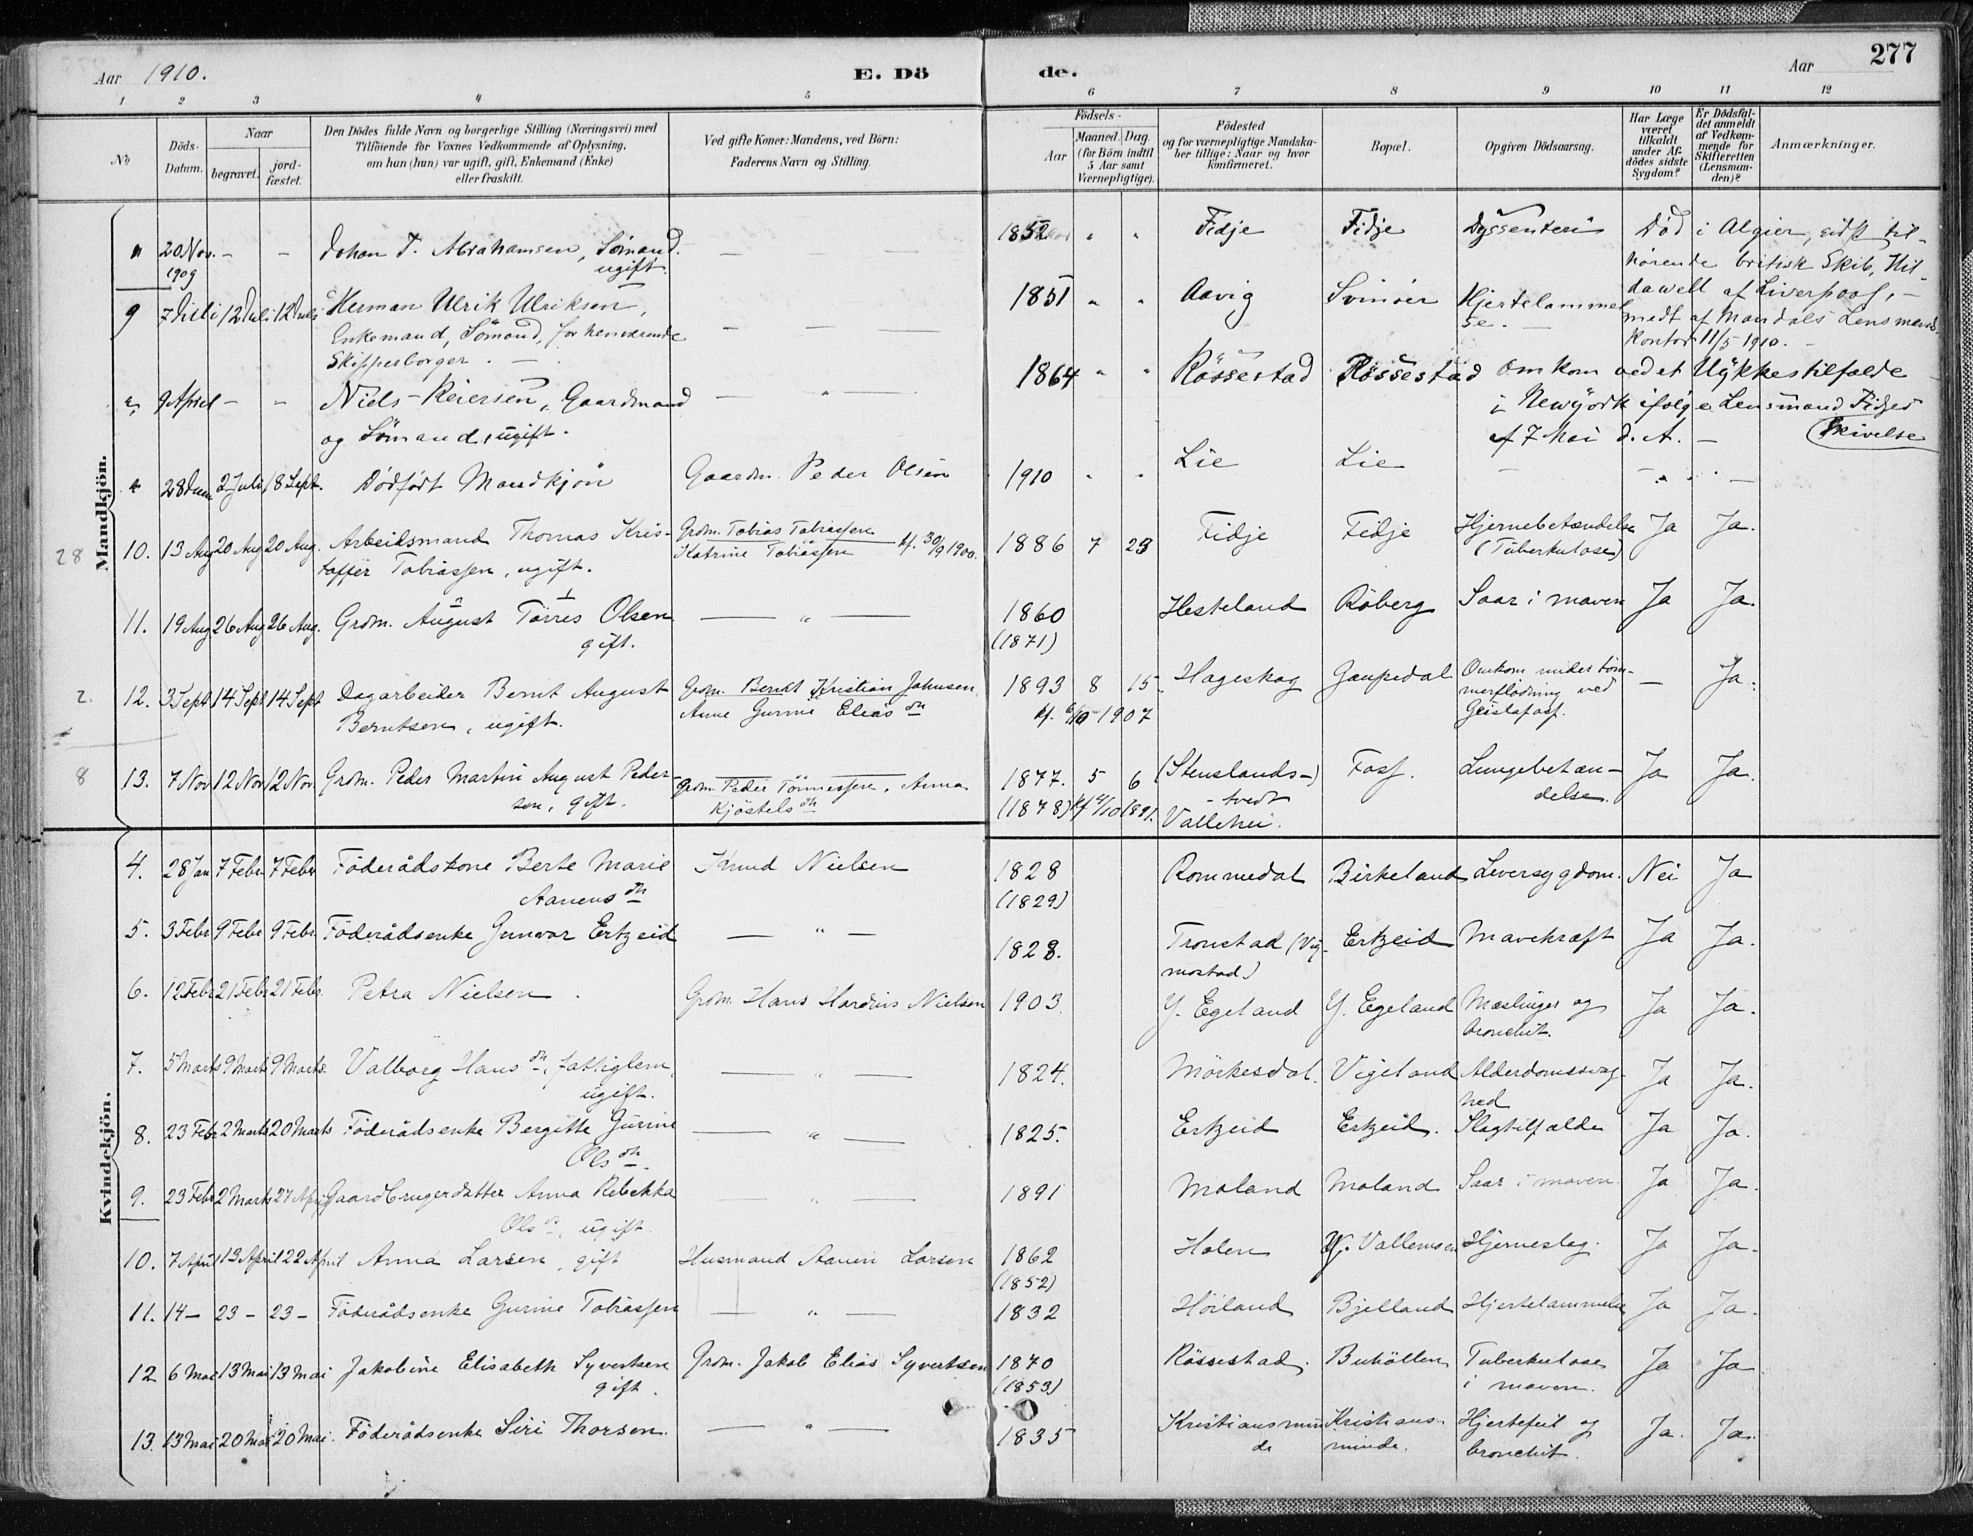 Aar 1910. E. Dö de. Aar 277
1 2 3 4 5 6 7 8 9 10 11 12
No
Döds-Datum.
Naar
begravet.
jordfæstet.
Den Dödes fulde Navn og borgerlige Stilling (Næringsvei) med
Tilföiende for Voxnes Vedkommende af Oplysning,
om han (hun) var ugift, gift, Enkemand (Enke)
eller fraskilt.
Ved gifte Koner: Mandens, ved Börn:
Faderens Navn og Stilling.
Födsels-
Aar
Maaned. Dag.
(for Börn indtil
5 Aar samt
Værnepligtige).
Födested
og for værnepligtige Mandska-
ber tillige: Naar og hvor
konfirmeret.
Bopæl.
Opgiven Dödsaarsag.
Har Læge
været
tilkaldt
under Af-
dödes sidste
Sygdom?
Er Dödsfal-
det anmeldt
af Vedkom-
mende for
Skifteretten
(Lensman-
den)?
Anmærkninger.
Mandkjön.
" 20 Nov. 1909 - - Johan T. Abrahamsen, Sømand. ugift. — — 1852 " " Fidje Fidje Dyssenteri Död i Algier, sidst til-
hörende britisk Skib, Hil-
dawell af Liverpool, -
medt af Mandals Lensmands
Kontor 11/5 1910. -
9 7 Juli 12 Juli 12 Juli Herman Ulrik Ulriksen,
Enkemand, Sömand, forhenværende
Skipperborger. — — — 1851 " " Aavig Svinöer Hjertelammel-
se. —
" 9 April - - Niels Reiersen, Gaardmand
og Sömand, ugift. — " — 1864 " " Rössestad Rössestad omkom ved et Ulykkestilfælde
i Newyork ifölge Lensmand Fidjes
Skrivelse
af 7 Mai d. A. —
" 28 Juni 2 Juli 18 Sept. Dödfödt Mandkjön Gaardm. Peder Olsen 1910 " " Lie Lie — — —
28 10. 13 Aug 20 Aug 20 Aug. Arbeidsmand Thomas Kris-
toffer Tobiassen, ugift. Grdm. Tobias Tobiassen
Katrine Tobiassen kf. 30/9 1900. 1886 7 23 Fidje Fidje Hjernebetændelse
(Tuberkulose) Ja Ja.
11. 19 Aug 26 Aug 26 Aug. Grdm. August Törres Olsen
gift. — " — 1860
(1871) Hesteland Röberg Saar i maven Ja Ja.
2. 12. 3 Sept 14 Sept 14 Sept Dagarbeider Bernt August
Berntsen, ugift. Grdm. Berent Kristian Johnsen,
Anne Gurine Elias dtr 1893 8 15
kf. 6/10 1907 Hageskog Gaupedal Omkom under töm-
merflödning ved
Geislafoss. — Ja.
8 13. 7 Nov 12 Nov 12 Nov. Grdm. Peder Martin August Peder-
sen, gift. Grdm Peder Tönnessen, Anna
Kjöstels dtr 1877. 5 6
(1878) 1891. (Stenslands-)
-tvedt
Vallehei. Foss. Lungebetæn-
delse. Ja Ja.
Kvindekjön.
4. 28 Jan 7 Febr 7 Febr Föderådskone Berte Marie
Aanens dtr Knud Nielsen 1828
(1829) Rommedal Birkeland Leversygdom. Nei Ja
5. 3 Febr 9 Febr 9 Febr. Föderådsenke Gunvor Ertzeid — " — 1828. Tronstad (Vig-
mostad) Ertzeid Mavekræft Ja Ja.
6. 12 Febr 21 Febr 21 Febr. Petra Nielsen. Grdm. Hans Hardius Nielsen 1903. Y. Egeland Y. Egeland Mæslinger og
bronchit. Ja Ja.
7. 5 Marts 9 Marts 9 Marts. Valborg Hans dtr, fattiglem,
ugift. — " — 1824. Mörkesdal. Vigeland Alderdomssvag-
hed Ja Ja.
8. 23 Febr 2 Marts 20 Marts Föderådsenke Bergitte Gurine
Ols dtr. — " — 1825. Ertzeid Ertzeid. Slagtilfælde Ja Ja.
9. 23 Febr 2 Marts 27 April Gaardbrugerdatter Anna Rebekka
Ols dtr, ugift. — " — 1891 Moland Moland Saar i maven. Ja Ja.
10. 7 April 13 April 22 April Anna Larsen, gift Husmand Aanen Larsen 1862
(1852) Holen Y. Vallemoen Hjerneslag. Ja Ja.
11. 14 - 23 - 23 - Föderådsenke Gurine Tobiassen — " — 1832 Höiland Bjelland Hjertelammelse Ja Ja.
12 6 Mai 13 Mai 13 Mai Jakobine Elisabeth Syvertsen
gift. Grdm. Jakob Elias Syvertsen 1870
(1853) Rössestad. Buhöllen Tuberkulose
i maven. Ja Ja
13. 13 Mai 20 Mai 20 Mai. Föderådsenke Siri Thorsen. — " — 1835 Kristiansmin-
de Kristians-
minde. Hjertefeil og
bronchit. Ja. Ja.